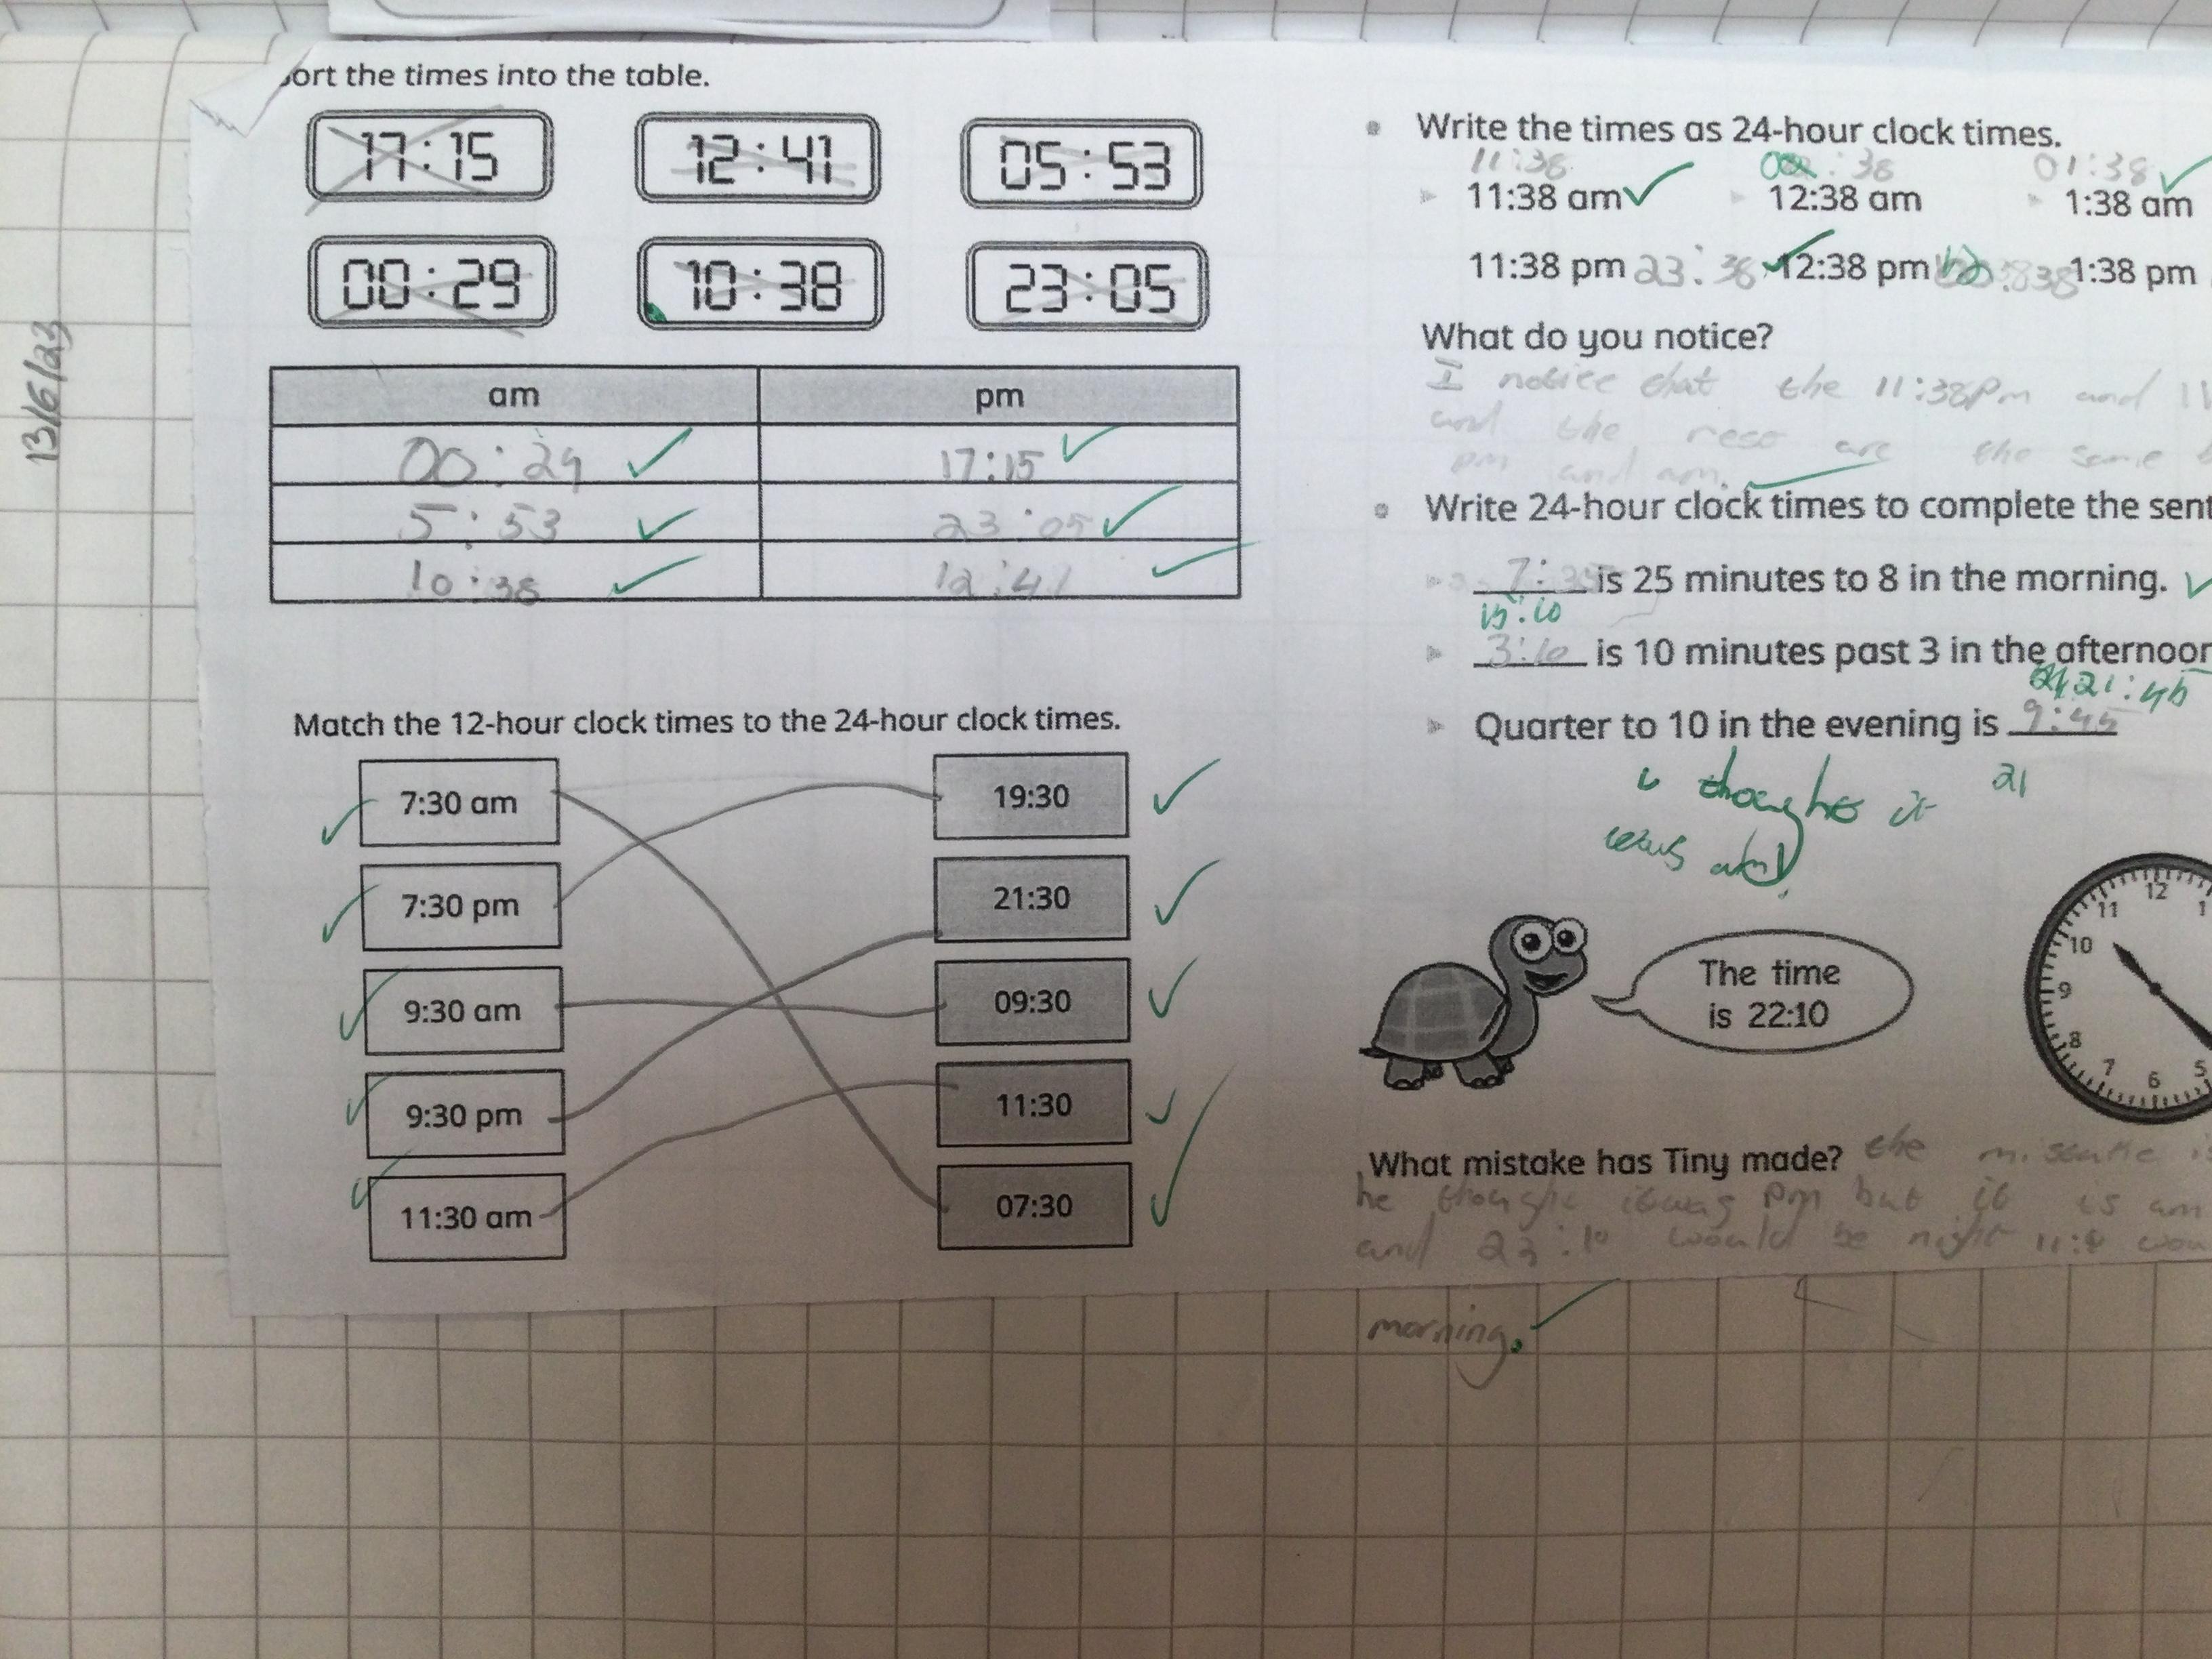 13/6/23
ort the times into the table.
17:15
12:41
05:53
00:29
10:38
23:05
am
pm
00:29
17:15
5:53
23:05
10:38
12:41
Match the 12-hour clock times to the 24-hour clock times.
7:30 am
19:30
7:30 pm
21:30
9:30 am
09:30
9:30 pm
11:30
11:30 am
07:30
Write the times as 24-hour clock times.
11:38
:38
01:38
11:38 am
12:38 am
1:38 am
11:38 pm 23:38
12:38 pm 12
1:38 pm
What do you notice?
I notice that the 11:38pm and 11
and the rest are the same b
pm and am.
Write 24-hour clock times to complete the sent
7:35 is 25 minutes to 8 in the morning.
15:10
3:10 is 10 minutes past 3 in the afternoon
21:45
Quarter to 10 in the evening is 9:45
i thought it 21
was am
The time
is 22:10
12
1
11
10
9
8
7
6
5
What mistake has Tiny made? the mistake is
he thought it was pm but it is am
and 22:10 would be night
morning.